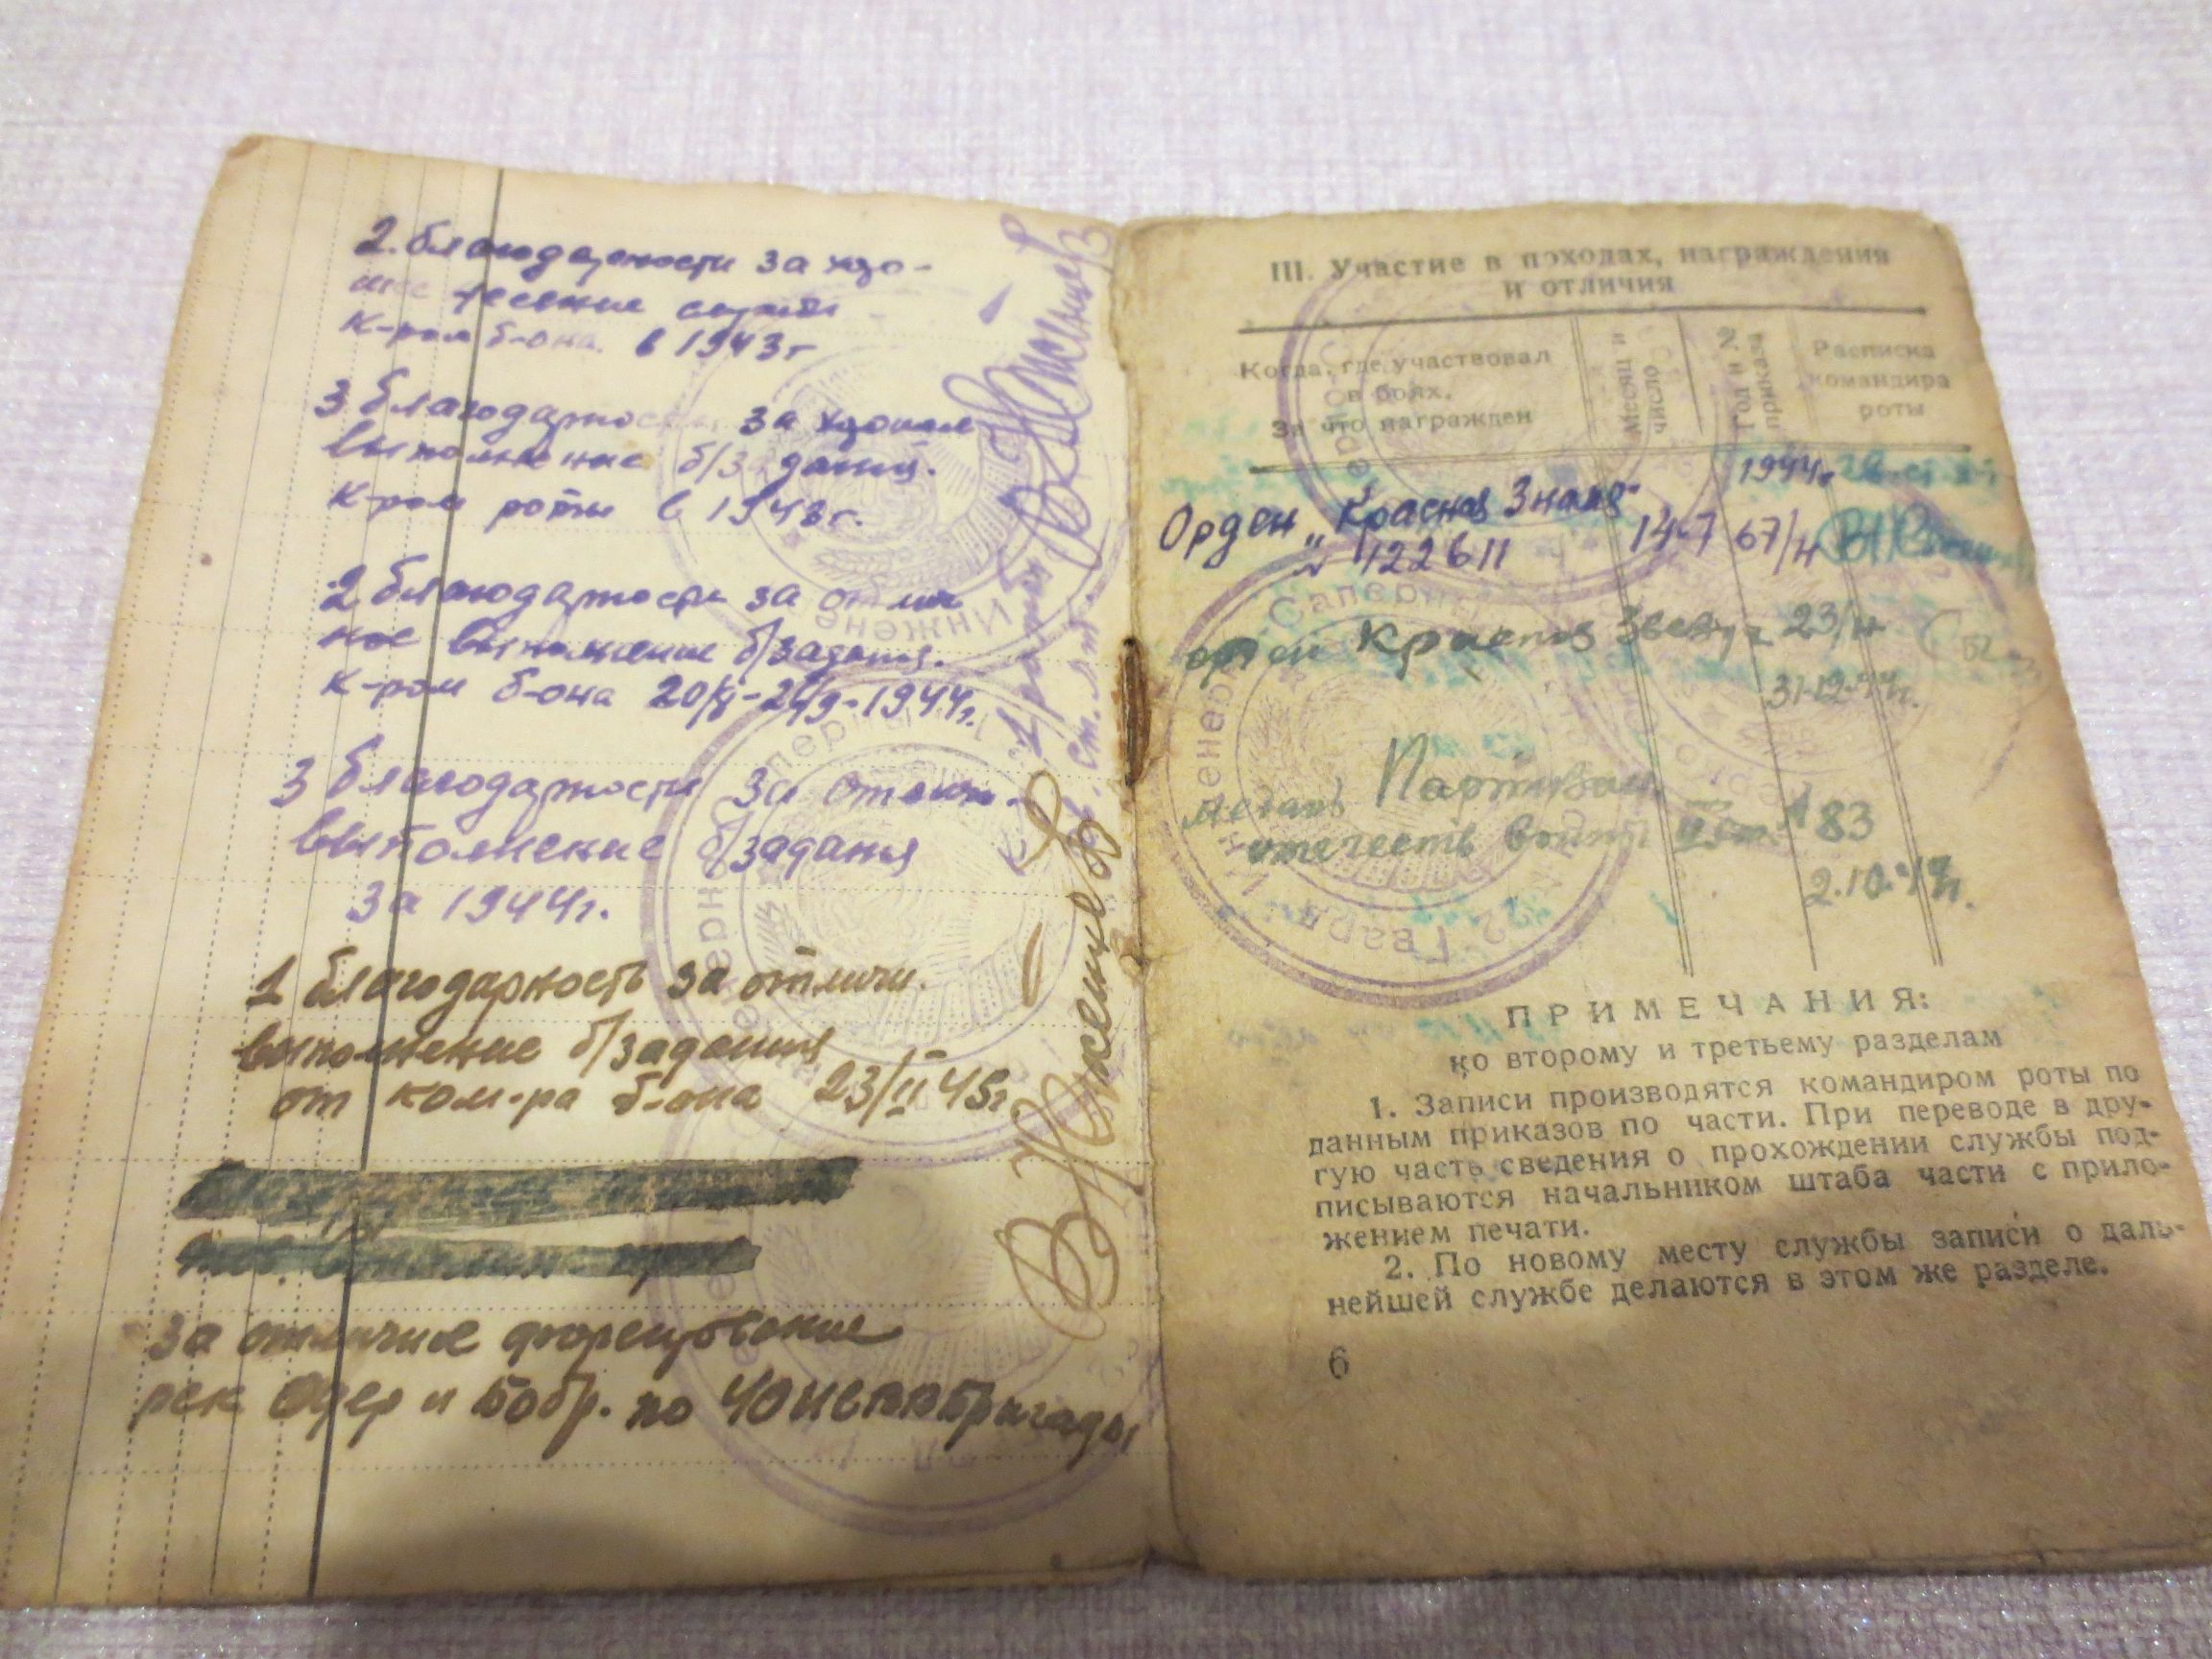 2. благодарности за хоро-
шее несение службы
К-ром б-она. в 1943г
3 благодарности за хорошее
выполнение б/задания.
К-ром роты в 1943г.
2 благодарности за отлич
ное выполнение б/задания.
К-ром б-она 1944г.
3 благодарности за отличн.
выполнение б/задания
за 1944г.
1 благодарность за отличн.
выполнение б/задания
от ком-ра б-она 23/II 45г
за отличие форсирование
рек Одер и Бобр. по бригады
III. Участие в походах, награждения
и отличия
Когда, где участвовал
в боях.
За что награжден
Месяц и
число
Год и №
приказа
Расписка
командира
роты
1944г.
Орден „Красное Знамя" 14-7 67/н
№ 122611
орден Красная Звезда 23/н
31-12-44г.
медаль Партизан
отечеств войны II ст № 83
2.10.44г.
Саперный
Гвард
Инженерно
ПРИМЕЧАНИЯ:
ко второму и третьему разделам
1. Записи производятся командиром роты по
данным приказов по части. При переводе в дру-
гую часть сведения о прохождении службы под-
писываются начальником штаба части с прило-
жением печати.
2. По новому месту службы записи о даль-
нейшей службе делаются в этом же разделе.
6